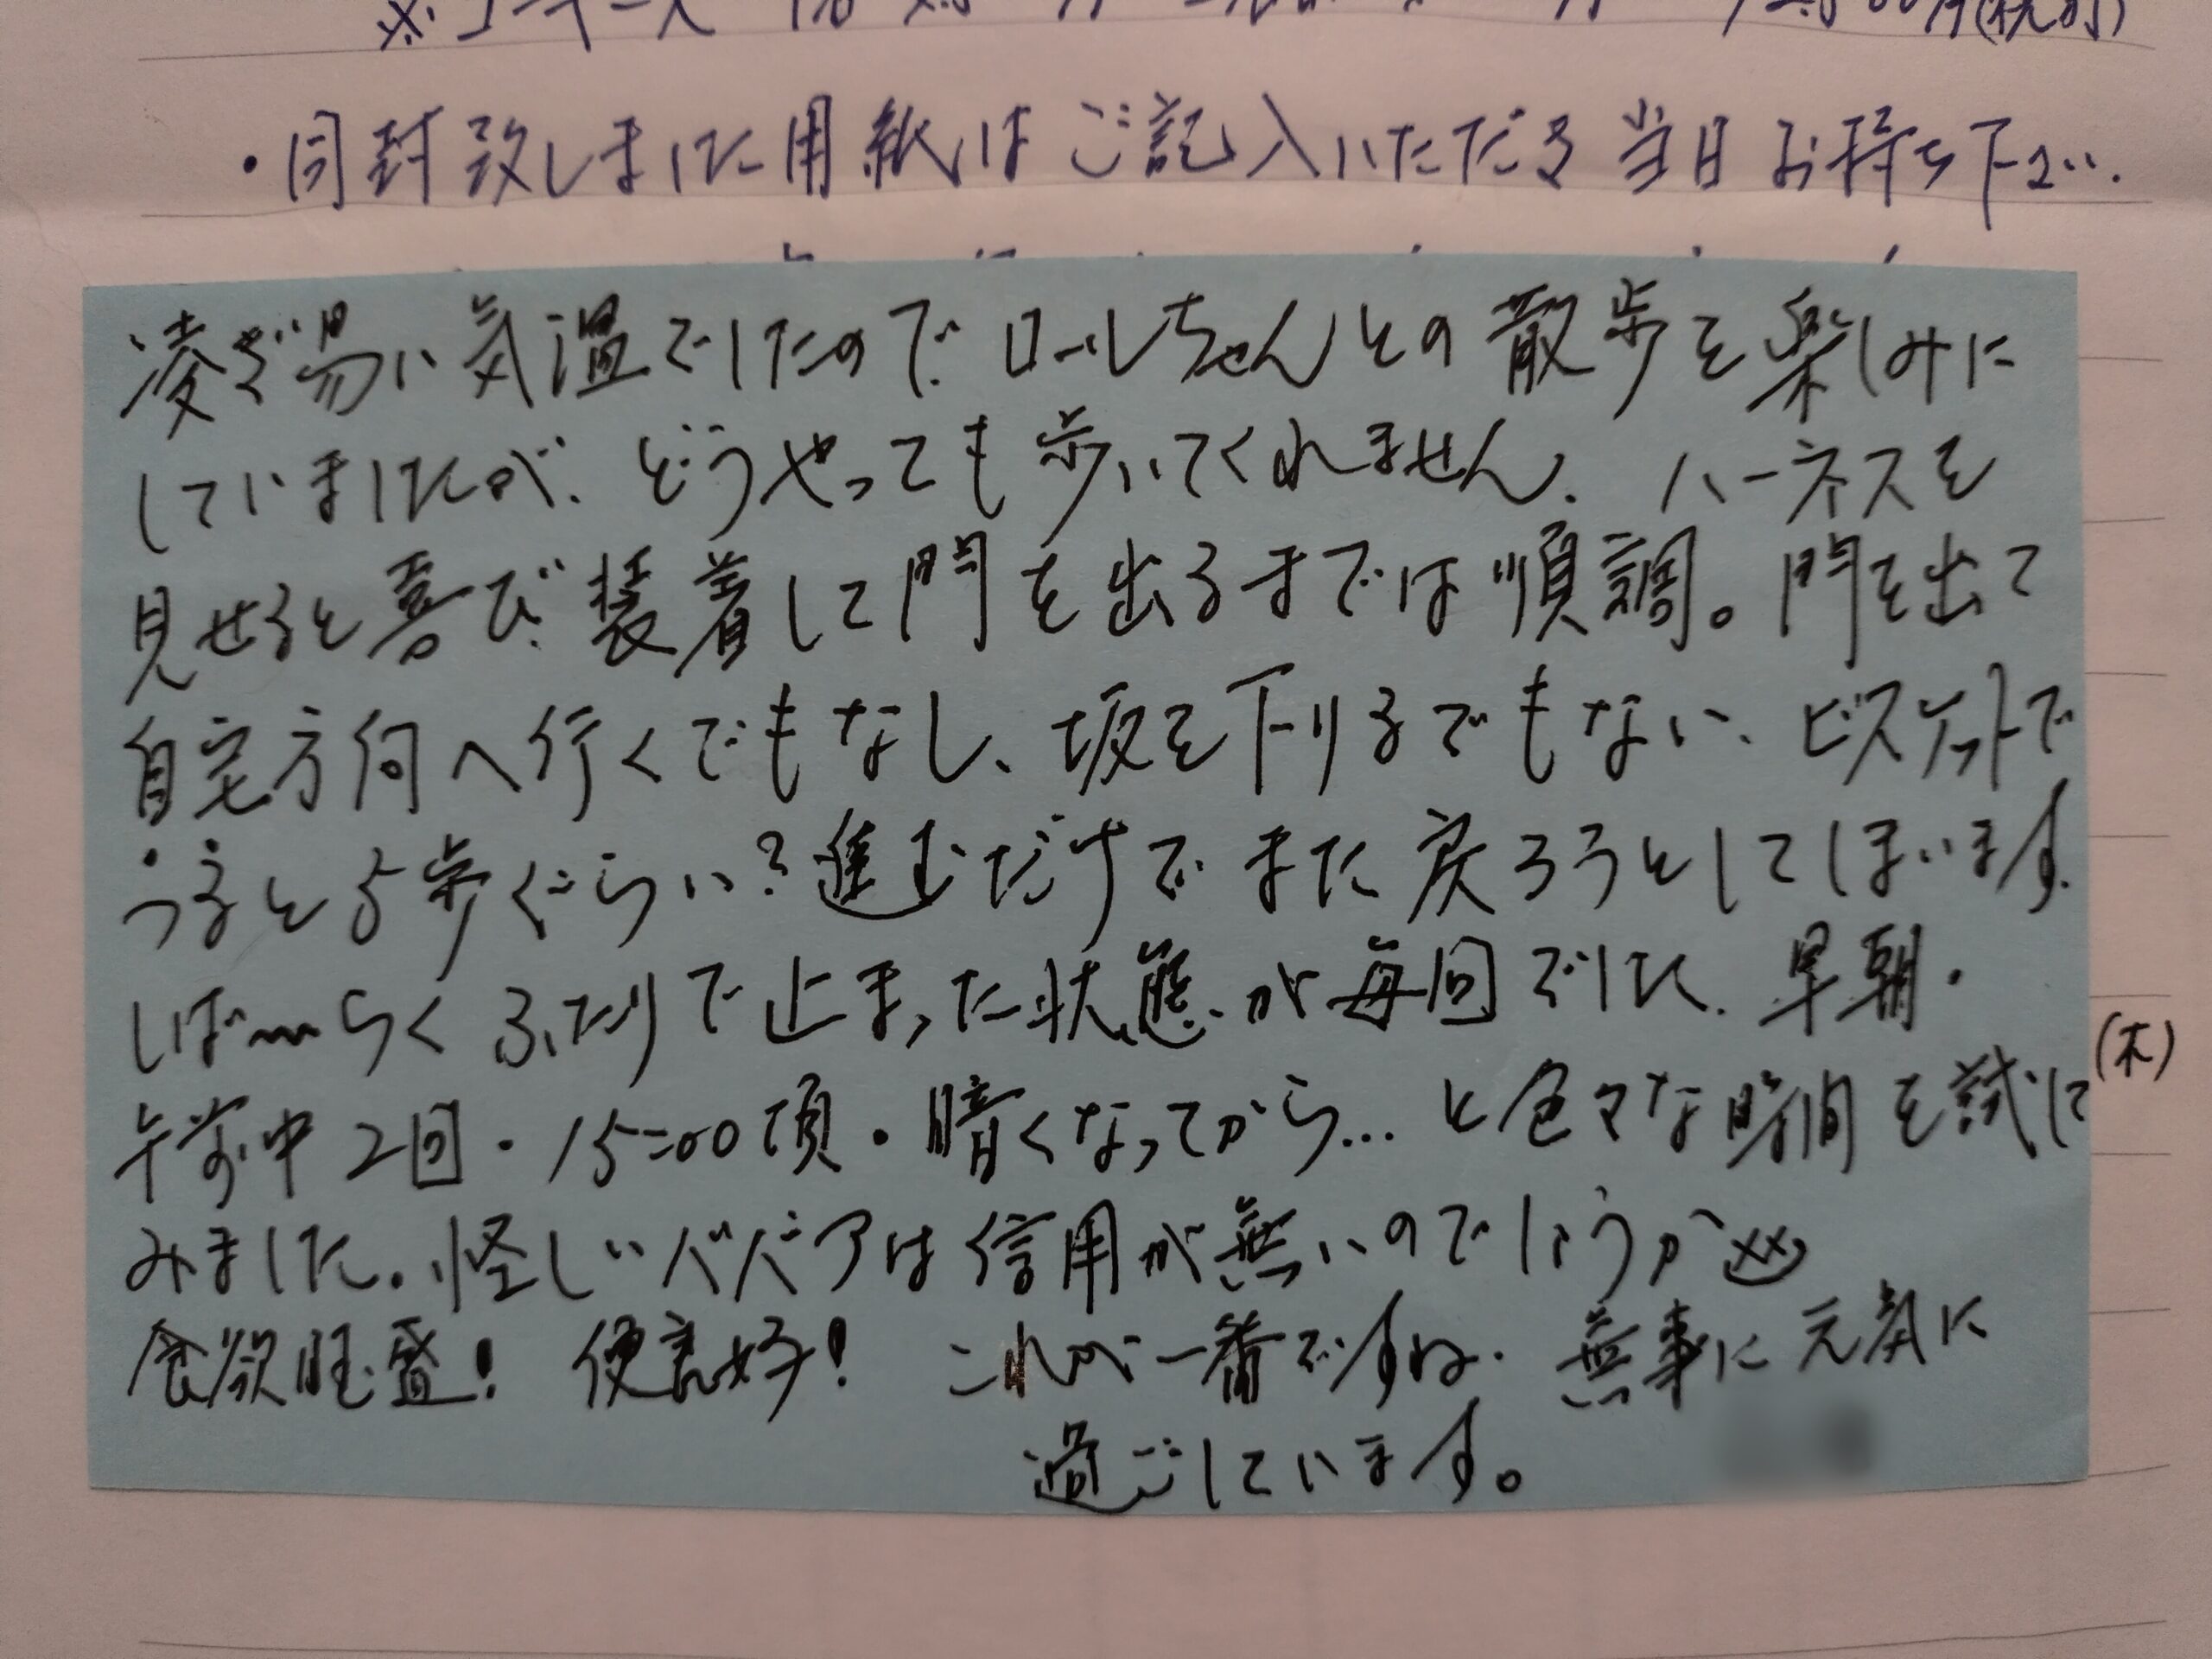 ・同封致しました用紙はご記入いただき当日お持ち下さい.
凌ぎ易い気温でしたので ロールちゃんとの散歩を楽しみに
していましたが、どうやっても歩いてくれません. ハーネスを
見せると喜び、装着して門を出るまでは順調。門を出て
自宅方向へ行くでもなし、坂を下りるでもない、ビスケットで
つると5歩ぐらい?進むだけで また戻ろうとしてしまいます.
しば〜らく ふたりで止まった状態が毎回でした. 早朝・
午前中2回・15:00頃・暗くなってから… と色々な時間を試して
(木)
みました. 怪しいババアは信用が無いのでしょうか
食欲旺盛! 便良好! これが一番ですね. 無事に元気に
過ごしています。